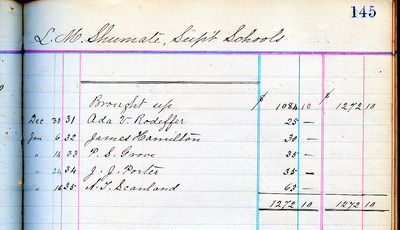 145
L. M. Shumate, Sup't Schools
Brought up $ 1084 10 $ 1272 10
Dec 30 31 Ada V. Rodeffer 25 —
Jan 6 32 James Hamilton 30 —
" 14 33 P. S. Grove 35 —
" 24 34 J. J. Porter 35 —
" 16 35 N. T. Scanland 63 —
1272 10 1272 10